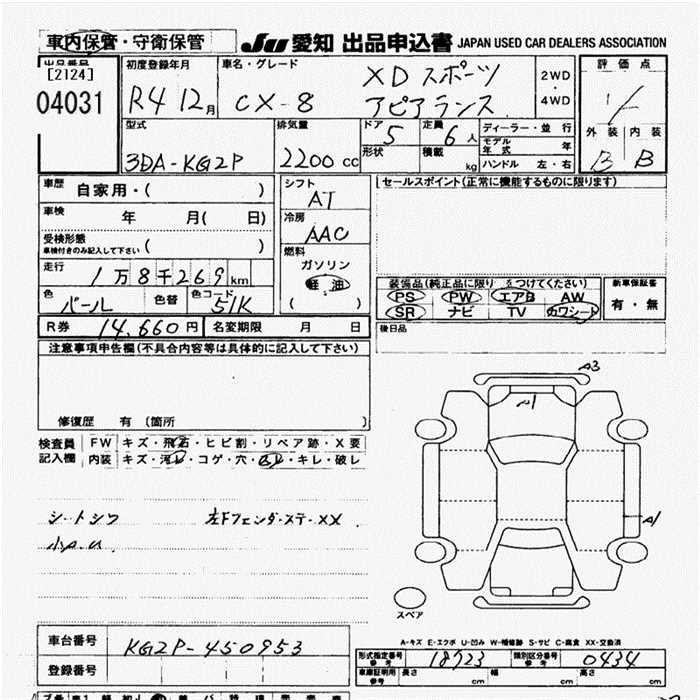 車内保管・守衛保管 JU 愛知 出品申込書 JAPAN USED CAR DEALERS ASSOCIATION
出品番号 初度登録年月 車名・グレード 評価点
[2124] XD スポーツ 2WD
04031 R4 12月 CX-8 アピアランス 4WD
型式 排気量 ドア 5 定員 6人 ディーラー・並行 外装 内装
3DA-KG2P 2200cc 形状 積載 kg モデル年式 年 B B
ハンドル 左・右
車歴 自家用・( ) シフト AT セールスポイント(正常に機能するものに限ります)
車検 年 月( 日) 冷房 AAC
受検形態 ( )
車検付きのみ記入して下さい
燃料
走行 1万8千269km ガソリン 装備品(純正品に限り をつけてください) 新車保証書
軽油 PS PW エアB AW 有・無
色 パール 色替 色コード 51K ( ) SR ナビ TV カワシート
R券 14,660円 名変期限 月 日 後日品
注意事項申告欄(不具合内容等は具体的に記入して下さい)
A3
A1
修復歴 有 (箇所 )
検査員 FW キズ・飛石・ヒビ割・リペア跡・X要
記入欄 内装 キズ・汚レ・コゲ・穴・スレ・キレ・破レ
シートシワ 左Fフェンダーステー XX
A1
スペア
A-キズ E-エクボ U-凹み W-補修跡 S-サビ C-腐食 XX-交換済
車台番号 KG2P-450953
形式指定番号 参考 18923 類別区分番号 参考 0434
登録番号 車庫証明用 参考 長さ cm 幅 cm 高さ cm